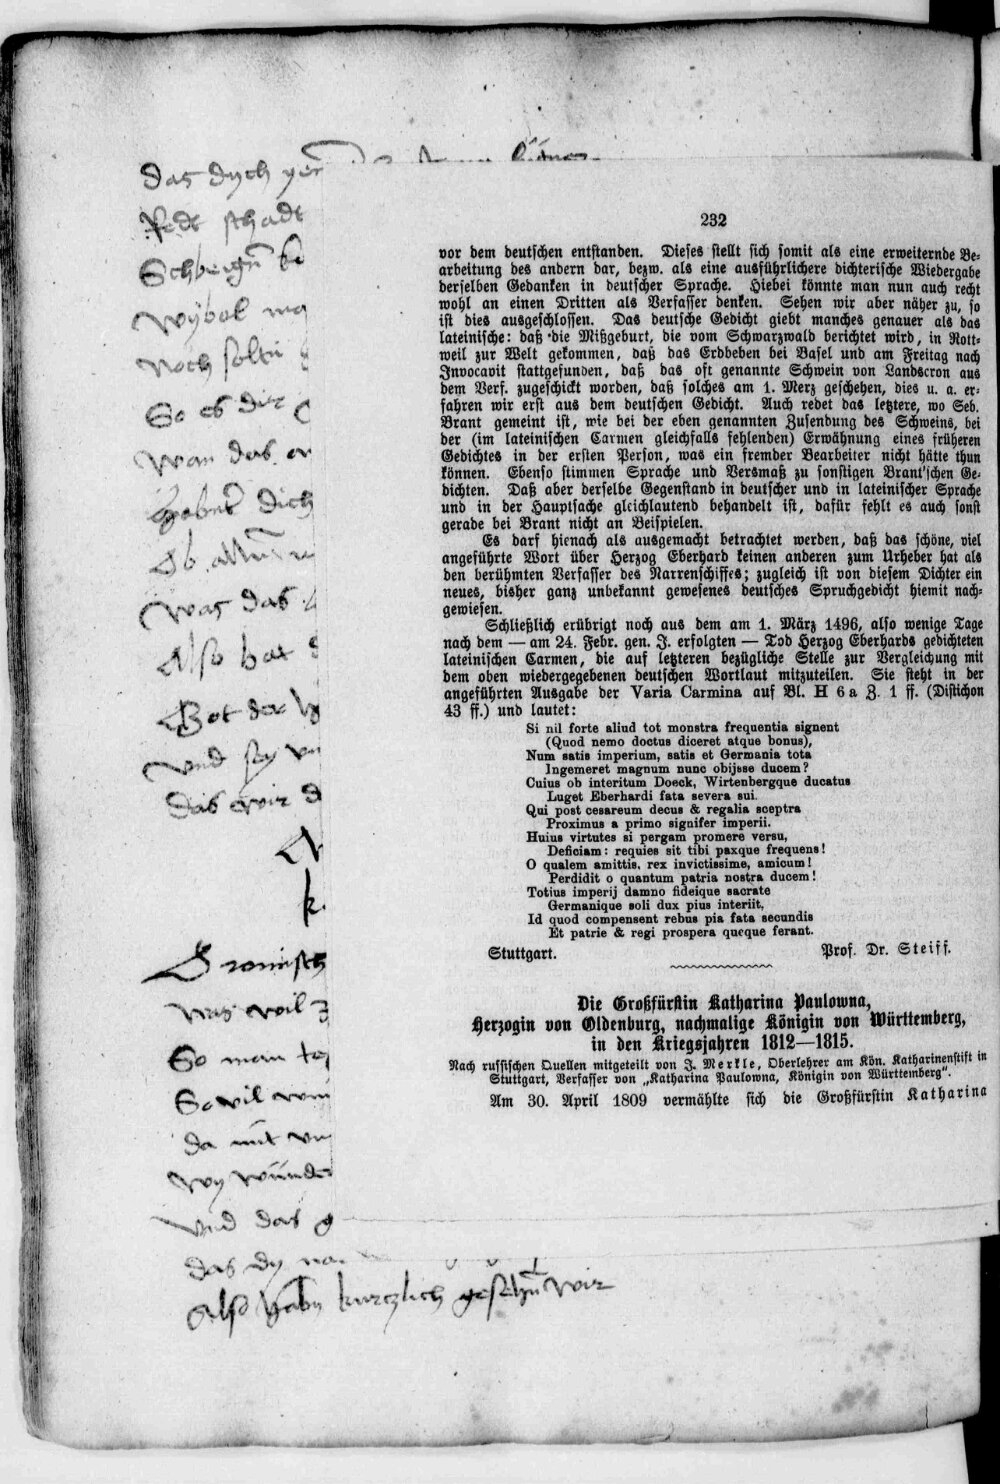 das dych
Redt schadt
So es dir
Was das
Also hat
Got der
Vnd sey
das wir
k.
was wil
So man
So wil
da mit
Vnd das
das dy
Also habn kurczlich gesehn wir
232
vor dem deutſchen entſtanden. Dieſes ſtellt ſich ſomit als eine erweiternde Be-
arbeitung des andern dar, bezw. als eine ausführlichere dichteriſche Wiedergabe
derſelben Gedanken in deutſcher Sprache. Hiebei könnte man nun auch recht
wohl an einen Dritten als Verfaſſer denken. Sehen wir aber näher zu, ſo
iſt dies ausgeſchloſſen. Das deutſche Gedicht giebt manches genauer als das
lateiniſche: daß die Mißgeburt, die vom Schwarzwald berichtet wird, in Rott-
weil zur Welt gekommen, daß das Erdbeben bei Baſel und am Freitag nach
Invocavit ſtattgefunden, daß das oft genannte Schwein von Landscron aus
dem Verf. zugeſchickt worden, daß ſolches am 1. Merz geſchehen, dies u. a. er-
fahren wir erſt aus dem deutſchen Gedicht. Auch redet das letztere, wo Seb.
Brant gemeint iſt, wie bei der eben genannten Zuſendung des Schweins, bei
der (im lateiniſchen Carmen gleichfalls fehlenden) Erwähnung eines früheren
Gedichtes in der erſten Perſon, was ein fremder Bearbeiter nicht hätte thun
können. Ebenſo ſtimmen Sprache und Versmaß zu ſonſtigen Brant'ſchen Ge-
dichten. Daß aber derſelbe Gegenſtand in deutſcher und in lateiniſcher Sprache
und in der Hauptſache gleichlautend behandelt iſt, dafür fehlt es auch ſonſt
gerade bei Brant nicht an Beiſpielen.
Es darf hienach als ausgemacht betrachtet werden, daß das ſchöne, viel
angeführte Wort über Herzog Eberhard keinen anderen zum Urheber hat als
den berühmten Verfaſſer des Narrenſchiffes; zugleich iſt von dieſem Dichter ein
neues, bisher ganz unbekannt geweſenes deutſches Spruchgedicht hiemit nach-
gewieſen.
Schließlich erübrigt noch aus dem am 1. März 1496, alſo wenige Tage
nach dem — am 24. Febr. gen. J. erfolgten — Tod Herzog Eberhards gedichteten
lateiniſchen Carmen, die auf letzteren bezügliche Stelle zur Vergleichung mit
dem oben wiedergegebenen deutſchen Wortlaut mitzuteilen. Sie ſteht in der
angeführten Ausgabe der Varia Carmina auf Bl. H 6 a Z. 1 ff. (Diſtichon
43 ff.) und lautet:
Si nil forte aliud tot monstra frequentia signent
(Quod nemo doctus diceret atque bonus),
Num satis imperium, satis et Germania tota
Ingemeret magnum nunc obijsse ducem?
Cuius ob interitum Doeck, Wirtenbergque ducatus
Luget Eberhardi fata severa sui.
Qui post cesareum decus & regalia sceptra
Proximus a primo signifer imperii.
Huius virtutes si pergam promere versu,
Deficiam: requies sit tibi paxque frequens!
O qualem amittis, rex invictissime, amicum!
Perdidit o quantum patria nostra ducem!
Totius imperij damno fideique sacrate
Germanique soli dux pius interiit,
Id quod compensent rebus pia fata secundis
Et patrie & regi prospera queque ferant.
Stuttgart. Prof. Dr. Steiff.
Die Großfürſtin Katharina Paulowna,
Herzogin von Oldenburg, nachmalige Königin von Württemberg,
in den Kriegsjahren 1812—1815.
Nach ruſſiſchen Quellen mitgeteilt von J. Merkle, Oberlehrer am Kön. Katharinenſtift in
Stuttgart, Verfaſſer von „Katharina Paulowna, Königin von Württemberg“.
Am 30. April 1809 vermählte ſich die Großfürſtin Katharina